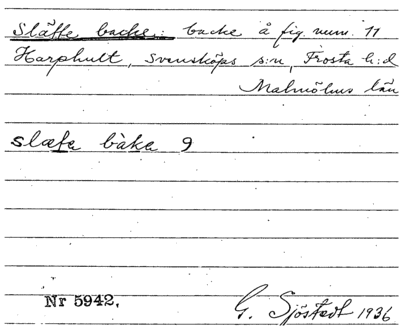 Släffe backe: backe å fig. num. 11
Harphult, Svensköps s:n, Frosta h:d
Malmöhus län
slæfa bàka 9
Nr 5942.
G. Sjöstedt 1936